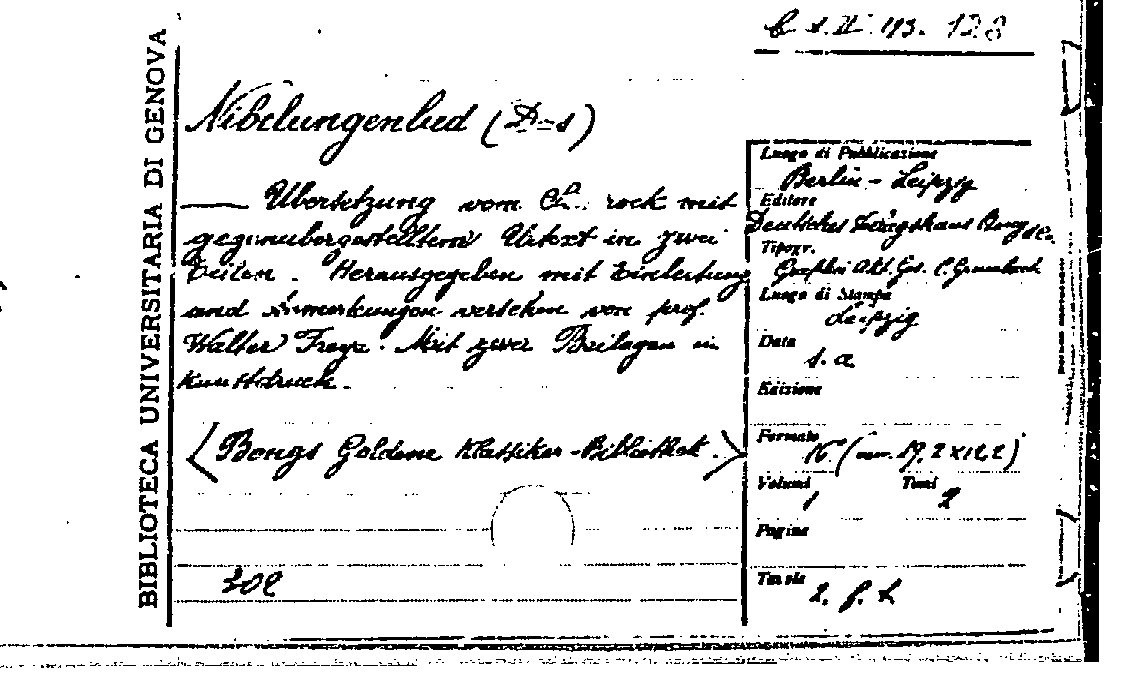 C s. II. 113. 128
BIBLIOTECA UNIVERSITARIA DI GENOVA
Nibelungenlied (Das)
—— Übersetzung vom rock mit
gegenübergestelltem Urtext in zwei
Teilen. Herausgegeben mit Einleitung
und Anmerkungen versehen von prof.
Walter Freye. Mit zwei Beilagen in
Kunstdruck.
<Bongs Goldene Klassiker-Bibliothek.>
Luogo di Pubblicazione
Berlin - Leipzig
Editore
Deutsches Verlagshaus Bong & Co.
Tipogr.
Akt. Ges. C. Grumbach
Luogo di Stampa
Leipzig
Data
s. a
Edizione
Formato
16° (cm. 19,2x12,2)
Volumi Tomi
1 2
Pagine
Tavole
2. f. t.